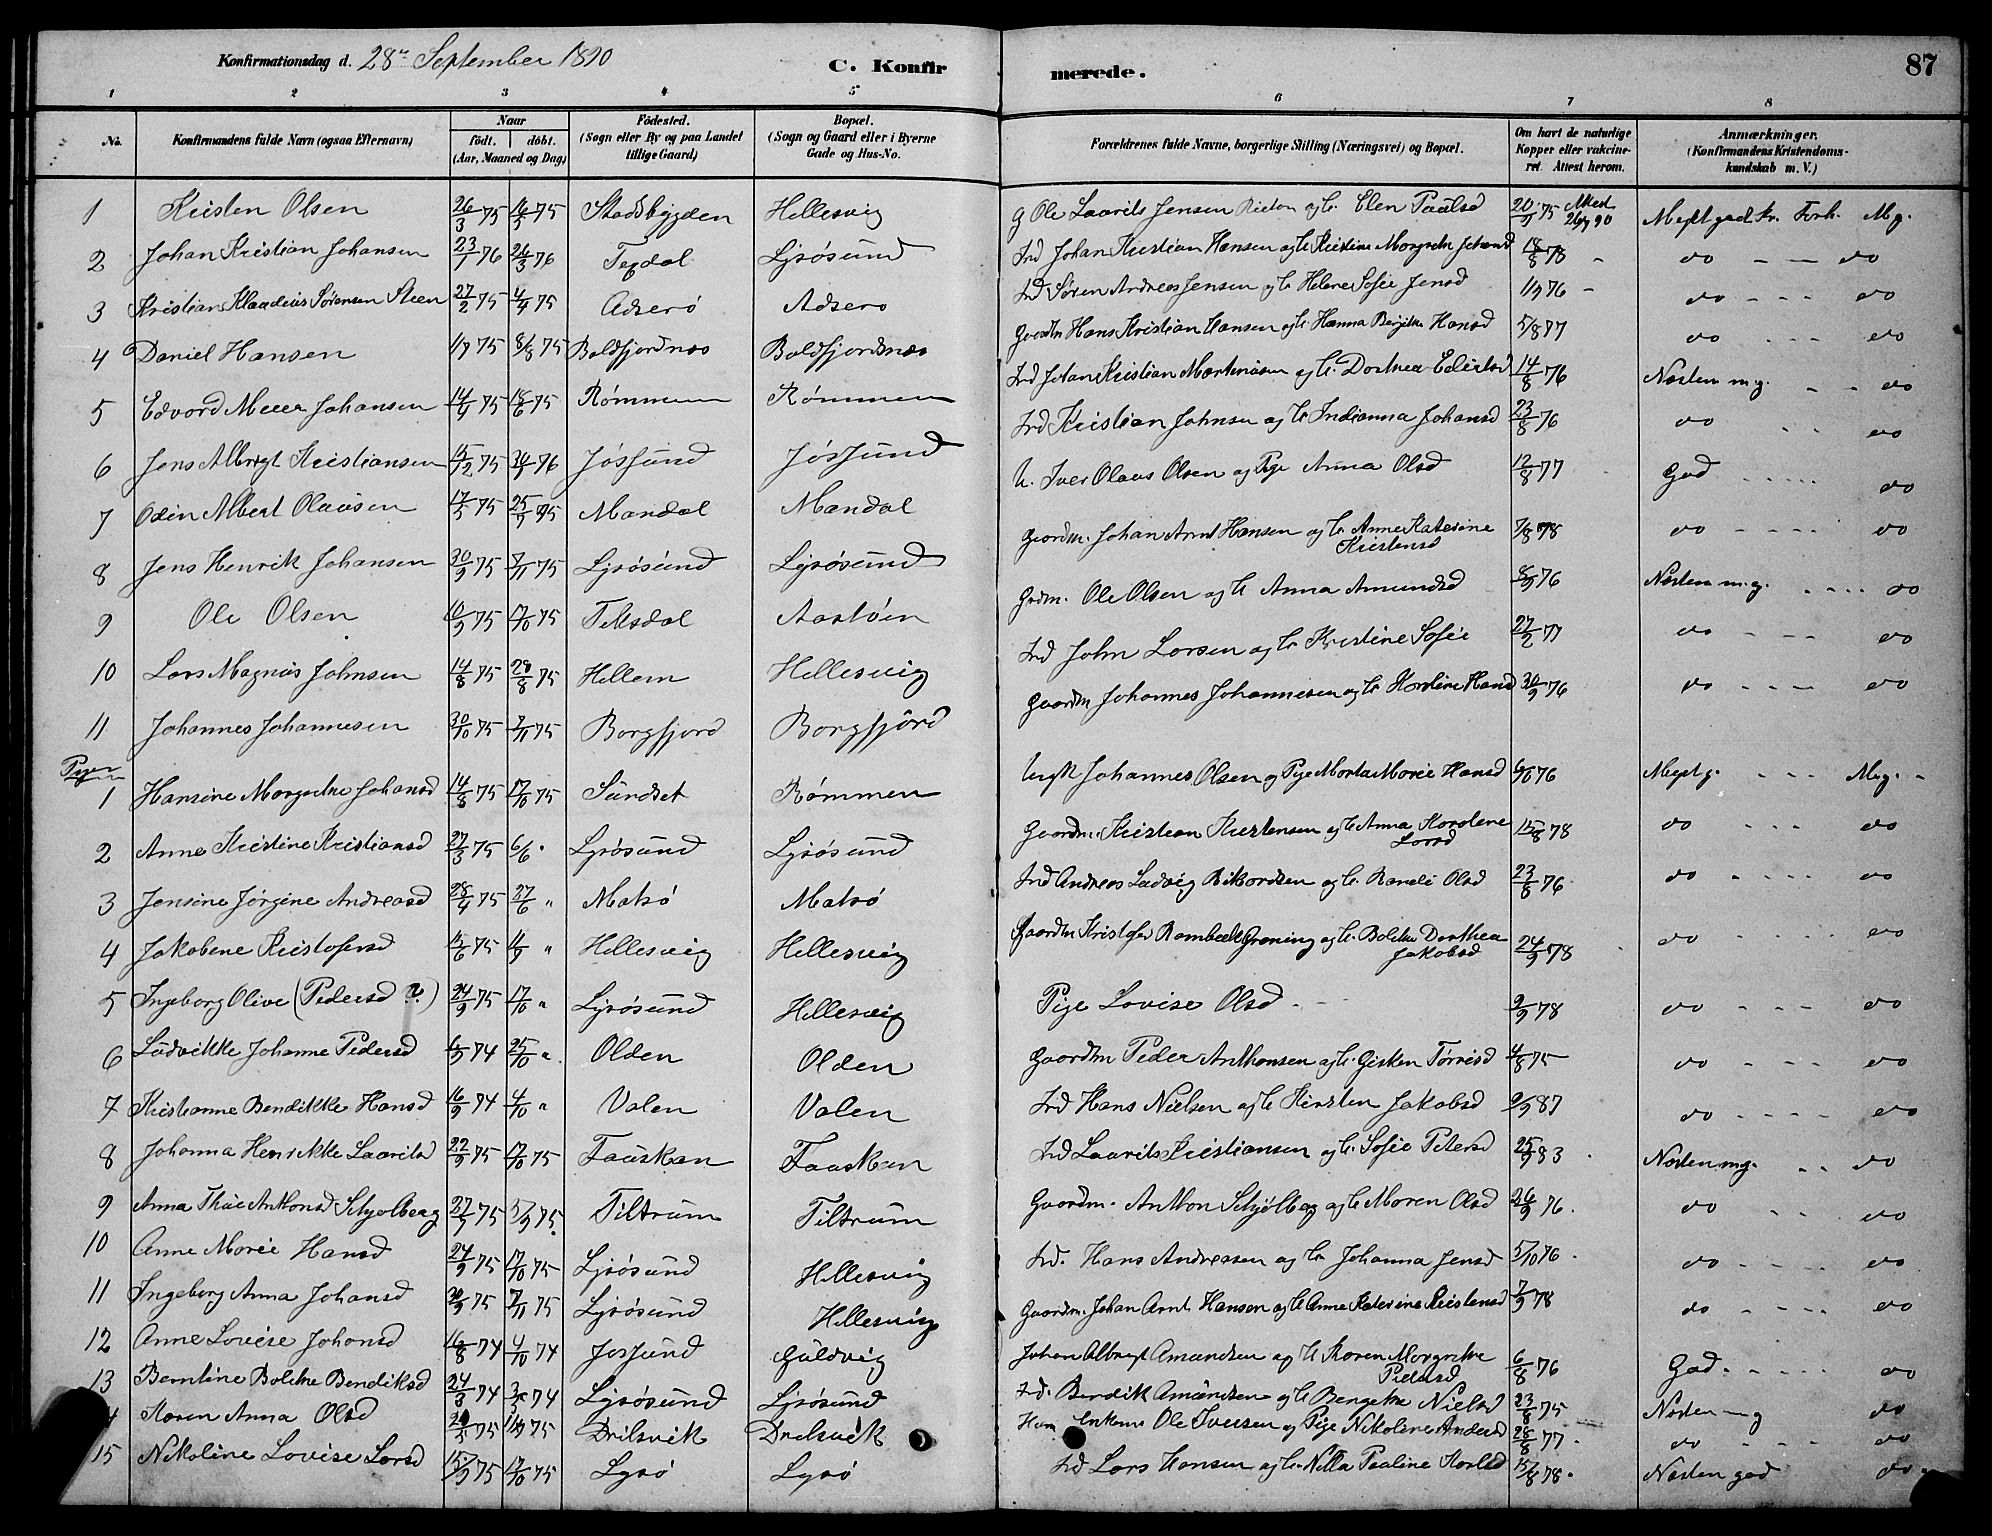 Konfirmationsdag d. 28de September 1890 C. Konfirmerede. 87
1 2 3 4 5 6 7 8
No. Konfirmandens fulde Navn (ogsaa Efternavn) Naar født. døbt. (Aar, Maaned og Dag) Fødested. (Sogn eller By og paa Landet tillige Gaard) Bopæl. (Sogn og Gaard eller i Byerne Gade og Hus-No. Forældrenes fulde Navne, borgerlige Stilling (Næringsvei) og Bopæl. Om havt de naturlige Kopper eller vakcineret. Attest herom. Anmærkninger. (Konfirmandens Kristendomskundskab m. V.)
1 Kristen Olsen 26/3 75 16/5 75 Stadsbygden Hellesvig G Ole Laurits Jensen og H. Elen Paulsd 20/9 75 Meget god Kr. Forh. Mg.
2 Johan Kristian Johansen 23/1 76 26/3 76 Teqdal Lysøsund Ind Johan Kristian Hansen og H Kristine Margrethe 18/8 78 do - - do
3 Kristian Klaudius Sørensen Steen 27/2 75 4/4 75 Adserø Adserø Ind Søren Andreas Jensen og H Helene Sofie Jensd 11/9 76 do - - - do
4 Daniel Hansen 1/7 75 8/8 75 Boldfjordnæs Boldfjordnæs Gaardm Hans Kristian Hansen og H. Hanna Bergitte Hansd 5/8 77 do - - do
5 Edvard Meier Johansen 14/4 75 18/6 75 Rømmen Rømmen Ind Johan Kristian Martinusen og H. Dorthea 14/8 76 Næsten mg. - - do
6 Jens Albrigt Kristiansen 15/12 75 76 Jøssund Jøssund Ind Kristian Johnsen og H Indianna Johansd 23/8 76 do - - do
7 Odin Albert Olausen 17/5 75 25/7 75 Mandal Mandal U. Iver Olaus Olsen og Pige Anna Olsd 12/8 77 God - - - do
8 Jens Henrik Johansen 30/9 75 7/11 75 Lysøsund Lysøsund Gaardm. Johan Arnt Hansen og H. Anne Katerine Kristensd 7/8 78 do - - - do
9 Ole Olsen 10/9 75 17/10 75 Teksdal Aastøen Grdm. Ole Olsen og H Anna Amundsd 8/9 76 Næsten m.g. - - - do
10 Lars Magnus Johnsen 14/8 75 28/8 75 Hellem Hellesvig Ind John Larsen og H Kristine Sofie 27/2 77 do - - - do
11 Johannes Johannesen 30/10 75 7/11 75 Borgfjord Borgfjord Gaardm Johannes Johannesen og H Karoline Hansd 30/9 76 do - - - do
Piger
1 Hansine Margrethe Johansd 14/8 75 17/10 75 Sundset Rømmen Ungk Johannes Olsen og Pige Marta Marie Hansd 6/8 76 Meget g. - - - Mg. -
2 Anne Kristine Kristiansd 27/3 75 6/6 " Lysøsund Lysøsund Gaardm. Kristian Kristensen og H Anna Karolene Larsd 15/8 78 do - - - do
3 Jensine Jørgine Andreasd 28/4 75 27/6 " Matsø Matsø Ind Andreas Ludvig Rikardsen og H. Randi Olsd 23/8 76 do - - - do
4 Jakobine Kristofersd 15/6 75 11/9 " Hellesvig Hellesvig Gaardm Kristofer Rambech Grøning og H. Bolette Dorthea Jakobsd 24/9 78 do - - - do
5 Ingeborg Olive (Pedersd ?) 24/9 75 17/10 " Lysøsund Hellesvig Pige Lovise Olsd - 9/9 78 do - - - do
6 Ludvikke Johanne Pedersd 6/9 74 25/10 " Olden Olden Gaardm Peder Anthonsen og H. Gisken Tørrisd 4/8 75 do - - - do
7 Kristianne Bendikke Hansd 16/9 74 4/10 " Valen Valen Ind Hans Nielsen og H Kirsten Jakobsd 9/9 87 do - - - do
8 Johanna Henrikke Lauritsd 22/9 75 17/10 75 Fauskan Fauskan Ind Laurits Kristiansen og H. Sofie Petersd 25/9 83 Næsten mg. - - do
9 Anna Thue Anthonsd Schjølberg 27/7 75 5/9 75 Tiltrum Tiltrum Gaardm. Anthon Schjølberg og H Maren Olsd 26/9 76 do - - - do
10 Anne Marie Hansd 24/9 75 17/10 75 Lysøsund Hellesvig Ind. Hans Andreasen og H. Johanna Jensd 5/10 76 do - - - do
11 Ingeborg Anna Johansd 30/9 75 7/11 75 Lysøsund Hellesvig Gaardm. Johan Arnt Hansen og H Anne Katerine Kristensd 7/9 78 do - - - do
12 Anne Lovise Johansd 16/8 74 4/10 74 Jøssund Guldvig Johan Albregt Amundsen og H Karen Margrethe Pedersd 6/8 76 God - - - - do
13 Berntine Bolette Bendiksd 24/3 74 3/5 74 Lysøsund Lysøsund Ind. Bendik Amundsen og H Bengete Nielsd 23/8 75 Næsten mg do
4 Karen Anna Olsd 75 75 Drilsvik Drilsvik Enkem Ole Iversen og Pige Nikoline Andersd 28/8 77 do - - - do
15 Nikoline Lovise Larsd 15/9 75 17/10 75 Lysø Lysø Ind Lars Hansen og H. Nilla Pauline Karlsd 15/8 78 Næsten god do